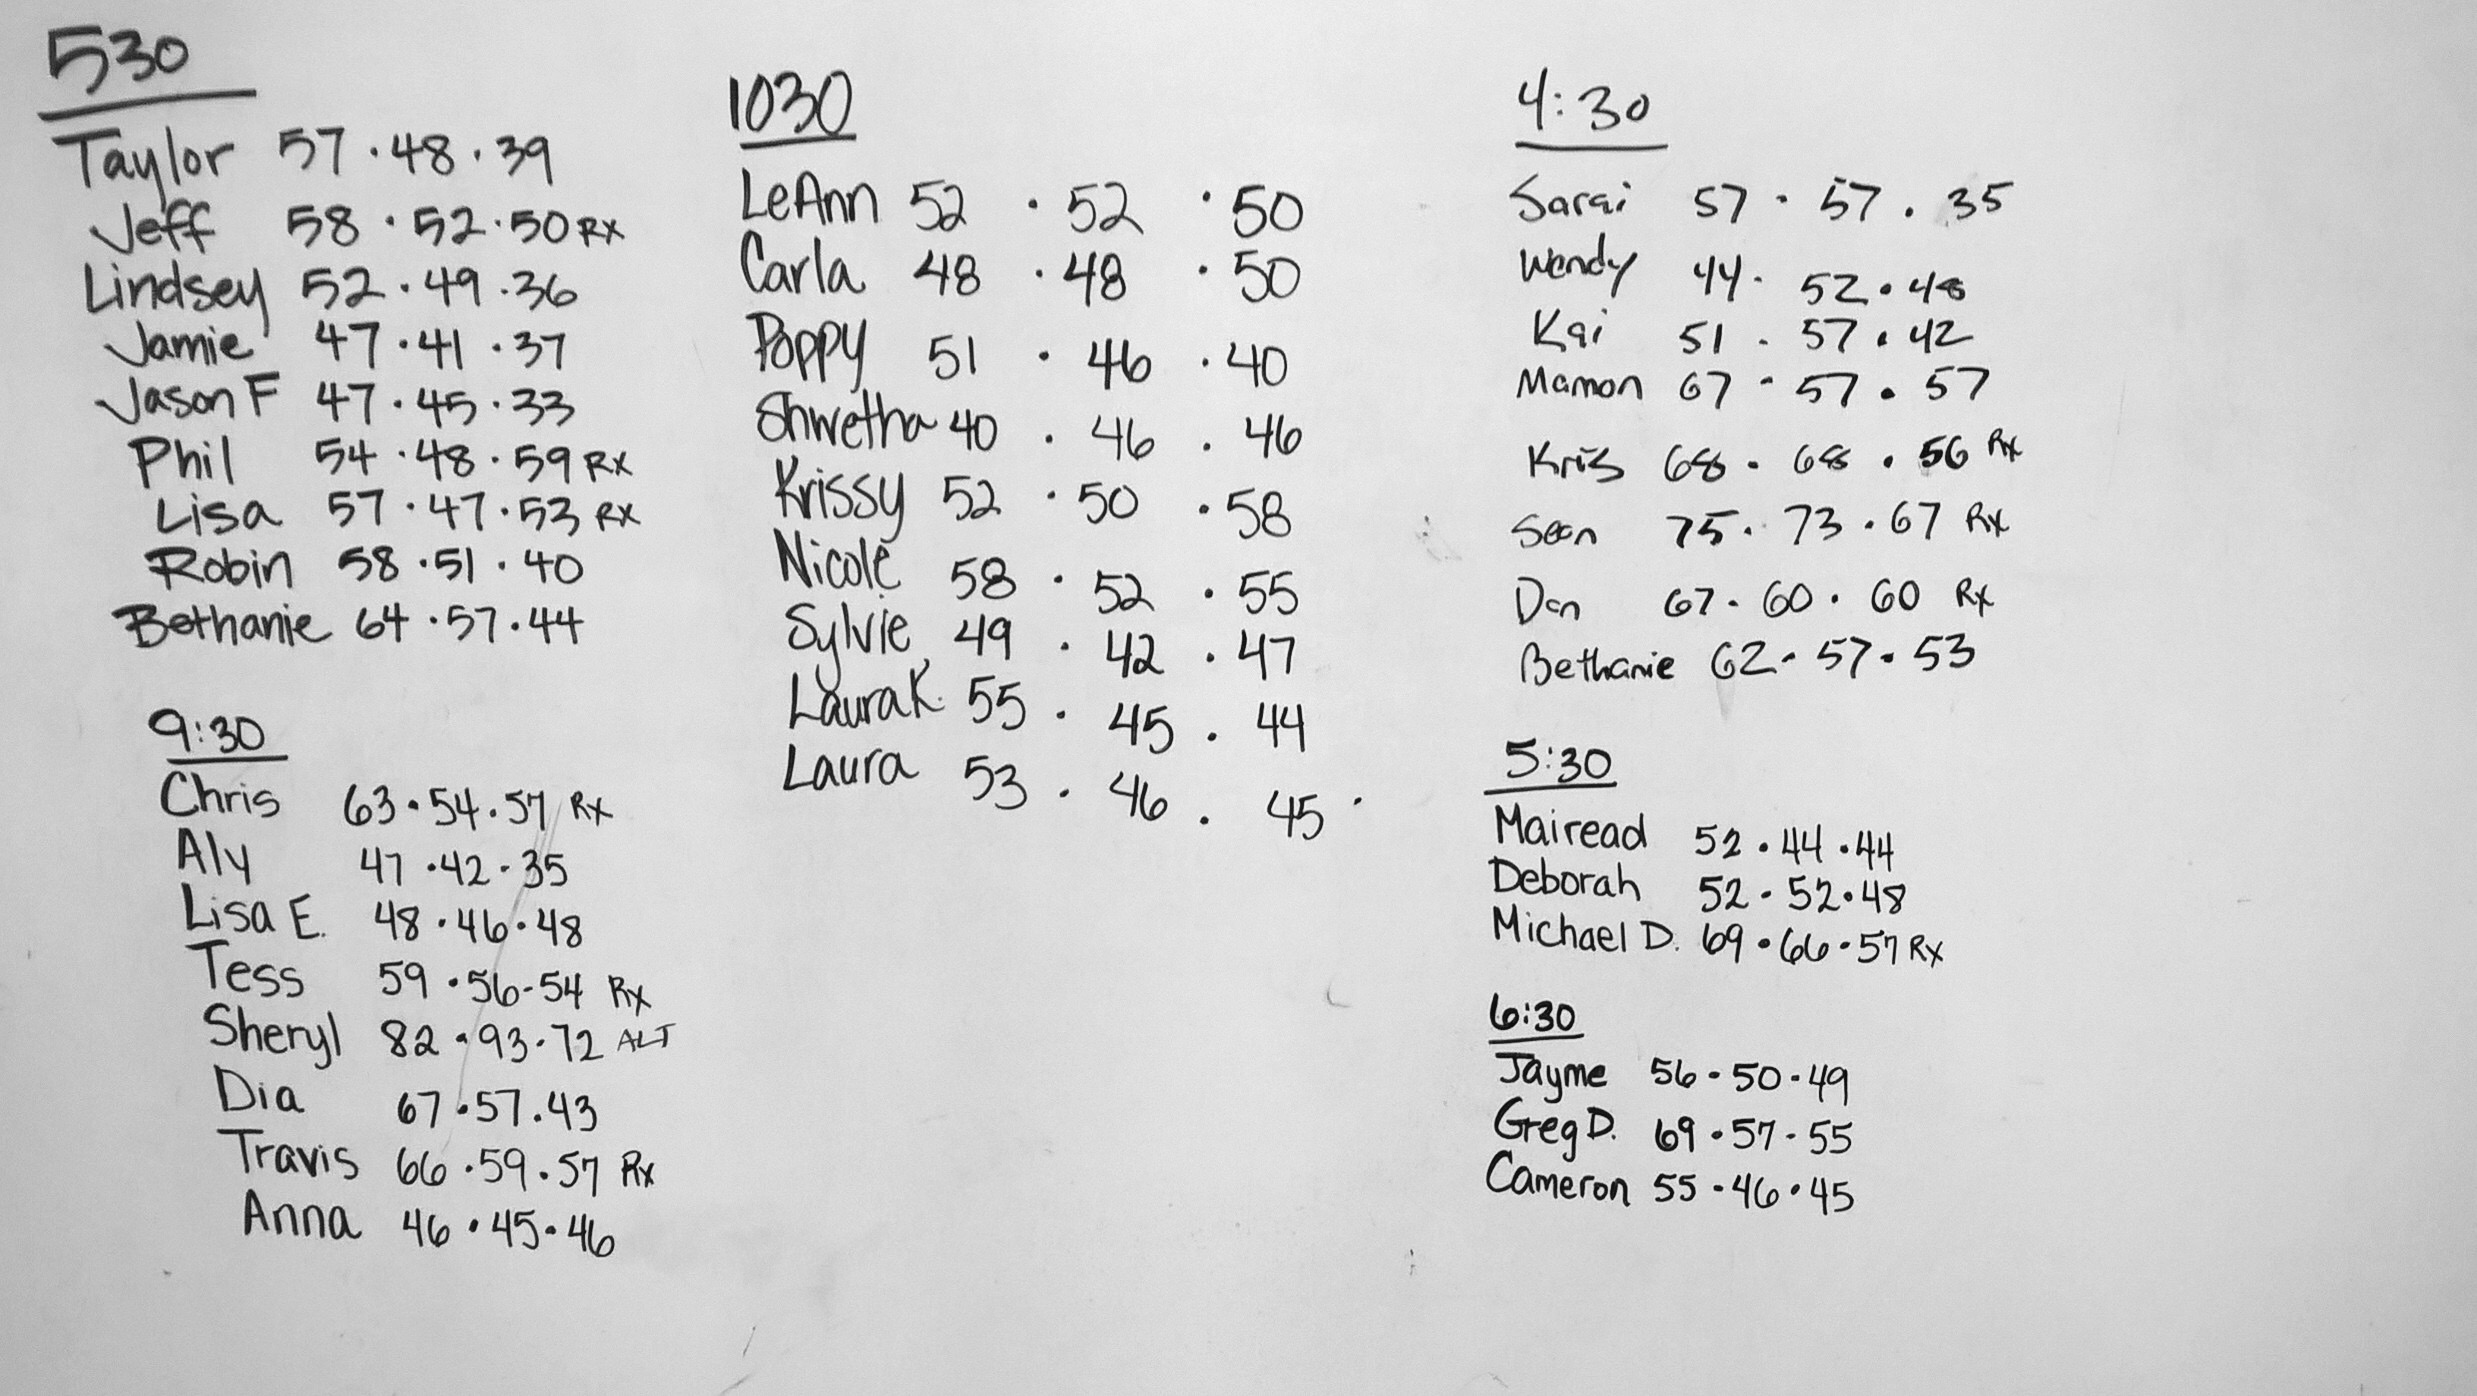 530
Taylor 57 · 48 · 39
Jeff 58 · 52 · 50 RX
Lindsey 52 · 49 · 36
Jamie 47 · 41 · 37
Jason F 47 · 45 · 33
Phil 54 · 48 · 59 RX
Lisa 57 · 47 · 53 RX
Robin 58 · 51 · 40
Bethanie 64 · 57 · 44
9:30
Chris 63 · 54 · 57 Rx
Aly 47 · 42 · 35
Lisa E. 48 · 46 · 48
Tess 59 · 56 - 54 Rx
Sheryl 82 · 93 · 72 ALT
Dia 67 · 57 · 43
Travis 66 · 59 · 57 Rx
Anna 46 · 45 · 46
1030
LeAnn 52 · 52 · 50
Carla 48 · 48 · 50
Poppy 51 · 46 · 40
Shwetha 40 · 46 · 46
Krissy 52 · 50 · 58
Nicole 58 · 52 · 55
Sylvie 49 · 42 · 47
Laura K. 55 · 45 · 44
Laura 53 · 46 · 45 ·
4:30
Sarai 57 · 57 · 35
Wendy 44 · 52 · 48
Kai 51 · 57 · 42
Mamon 67 · 57 · 57
Kris 68 · 68 · 56 Rx
Sean 75 · 73 · 67 Rx
Dan 67 · 60 · 60 Rx
Bethanie 62 · 57 · 53
5:30
Mairead 52 · 44 · 44
Deborah 52 · 52 · 48
Michael D. 69 · 66 · 57 Rx
6:30
Jayme 56 · 50 · 49
Greg D. 69 · 57 - 55
Cameron 55 · 46 · 45